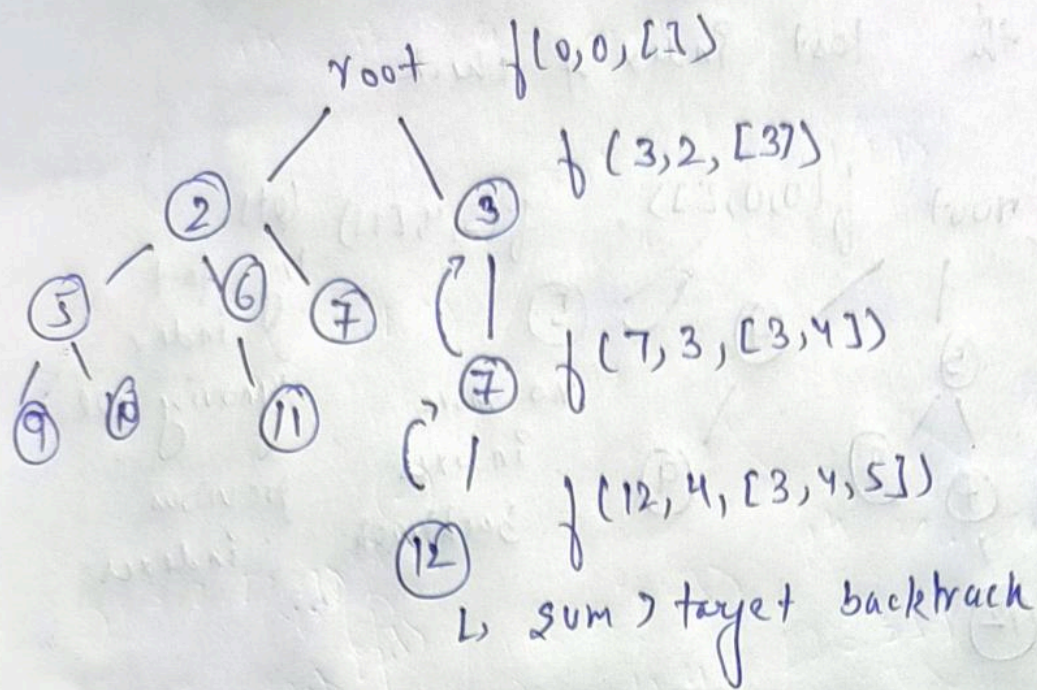 root f(0,0,[])
f(3,2,[3])
2 3
5 6 7
f(7,3,[3,4])
7
9 10 11
f(12,4,[3,4,5])
12
↳ sum > target backtrack